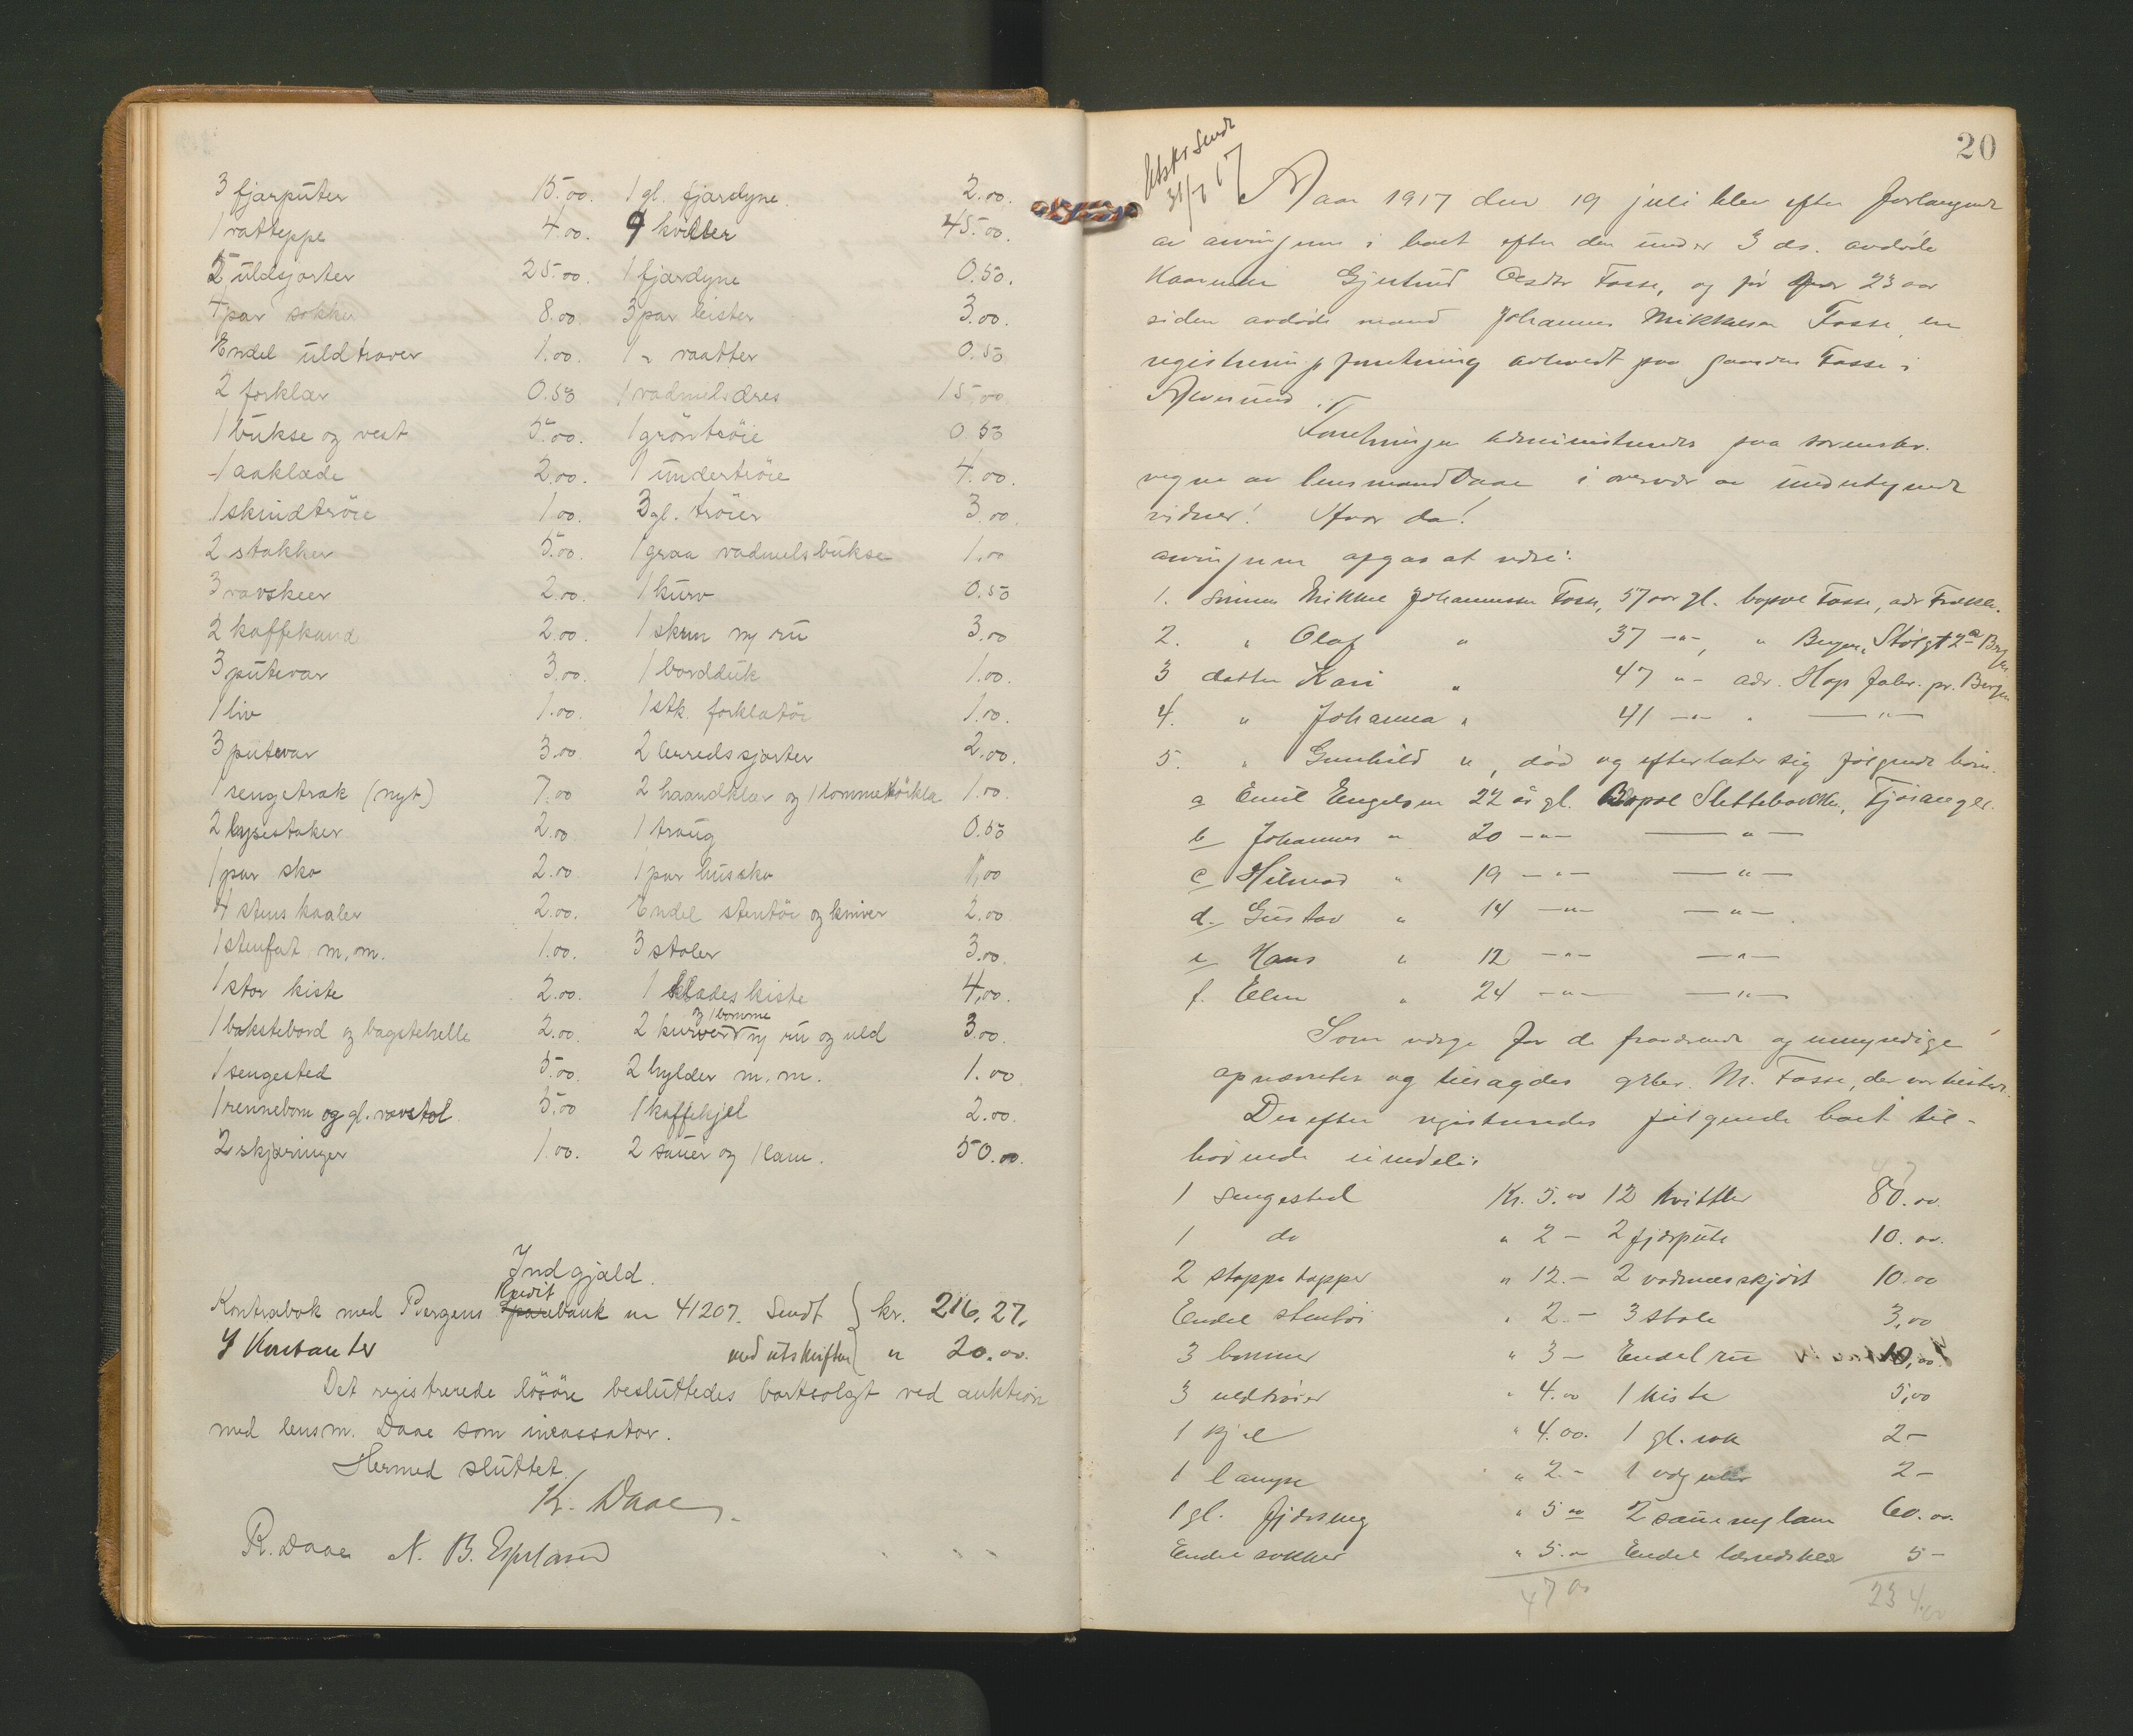 3 fjærputer 15.00. 1 gl. fjærdyne. 2.00.
1 vatteppe 4.00. 9 kvitler 45.00.
5 uldsjorter 25.00. 1 fjærdyne 0.50.
4 par sokker 8.00. 3 par leister 3.00.
Endel uldtraver 1.00. 1 " vaatter 0.50
2 forklær 0.50 1 vadmelsdres 15,00
1 bukse og vest 5.00. 1 gröntröie 0.50
1 aaklæde 2.00. 1 undertröie 4.00.
1 skindtröie 1.00. 3 gl. tröier 3.00.
2 stakker 5.00. 1 graa vadmelsbukse 1.00
3 ravskeer 2.00. 1 kurv 0.50
2 kaffekand 2.00. 1 skrin ny ru 3.00
3 putevar 3.00. 1 bordduk 1.00.
1 liv 1.00. 1 stk. forklætöi 1.00.
3 putevar 3.00 2 lerredssjorter 2.00.
1 sengetræk (nyt) 7.00 2 haandklær og 1 lommetörklæ 1.00.
2 lysestaker 2.00 1 traug 0.50
1 par sko 2.00 1 par hussko 1,00
4 stenskaaler 2.00. Endel stentöi og kniver 2.00
1 stenfat m.m. 1.00. 3 stoler 3.00.
1 stor kiste 2.00. 1 klædeskiste 4,00.
og 1 bomme
1 bakstebord og bagstehelle 2.00. 2 kurver ny ru og uld 3.00.
1 sengested 5.00. 2 hylder m.m. 1.00
1 rennebom og gl. vævstol 5.00 1 kaffekjel 2.00.
2 skjæringer 1.00. 2 sauer og 1 lam. 50.00.
Indgjæld.
Kredit
Kontrabok med Bergens Sparebank nr 41207. Sendt kr. 216,27.
I Kontanter med utskriften " 20.00.
Det registrerede lösöre besluttedes bortsolgt ved auktion
med lensm. Daae som incassator.
Hermed sluttet.
K. Daae
R. Daae N. B. Espeland
20
Utskr sendt
31/7 17
Aar 1917 den 19 juli blev efter forlangende
av arvingerne i boet efter den under 3 ds. avdøde
Kaarenke Gjertrud Olsdtr Fosse, og for 23 aar
siden avdøde mand Johannes Mikkelsen Fosse en
registreringsforretning avholdt paa gaarden Fosse i
Alversund.
Forretningen administreredes paa sorenskr.
vegne av lensmand Daae i overvær av undertegnede
vidner! Hvor da!
arvingerne opgaves at være:
1. Sönnen Mikkel Johannessen Fosse, 57 aar gl. bopæl Fosse, adr Frekh.
2. " Olaf " 37 -"-, " Bergen, Stølgt 2a Bergen
3 datter Kari " 47 "- adr. Hop fabr. pr. Bergen
4. " Johanna " 41 -"- " -"-
5. " Gunhild ", död og efterlater sig følgende börn.
a Emil Engelsen 22 år gl. Bopæl Slettebakken, Fjösanger.
b Johannes " 20 -"- -"-
c Hilmar " 19 -"- -"-
d. Gustav " 14 -"- -"-
e Hans " 12 -"- -"-
f. Elen " 24 -"- -"-
Som værge for de fraværende og umyndige
opnævntes og tilsagdes grbr. M. Fosse, der var tilstede.
Derefter registreredes følgende boet til-
hörende eiendele:
1 sengested Kr. 5.00 12 kvitler 80.00.
1 do " 2 - 2 fjærpute 10.00.
2 stoppetepper " 12.- 2 vadmelsskjört 10.00
Endel stentöi " 2.- 3 stole 3,00
3 bommer " 3 - Endel ru 10,00.
3 uldtröier " 4.00 1 kiste 5,00
1 kjel " 4.00. 1 gl. rok 2-
1 lampe " 2.- 1 væguhr 2-
1 gl. fjærseng " 5 00 2 sauer og lam 60.00.
Endel sokker " 5.- Endel lerredsklær 5-
47 00 234.00